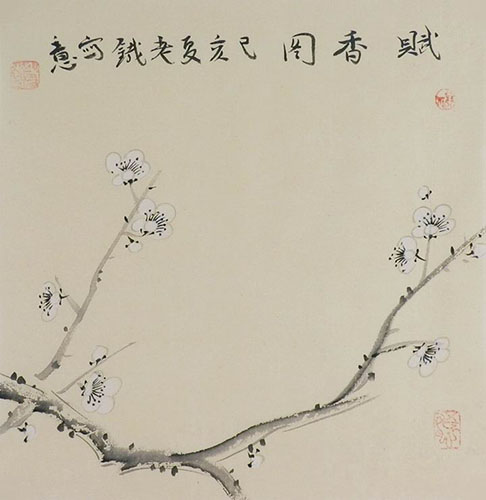 賦香图 己亥夏老鐵寫意